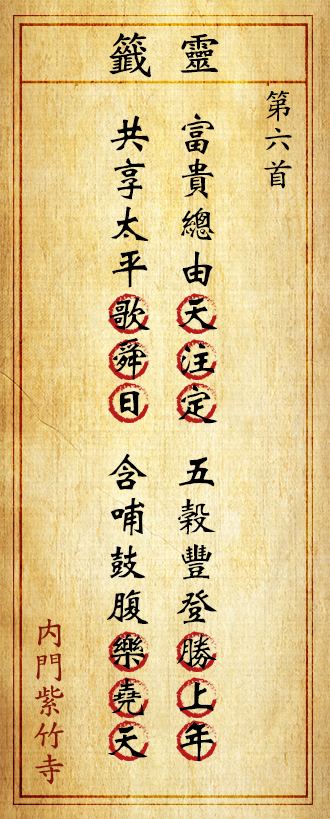 靈籤
第六首
富貴總由天注定
五穀豐登勝上年
共享太平歌舜日
含哺鼓腹樂堯天
内門紫竹寺